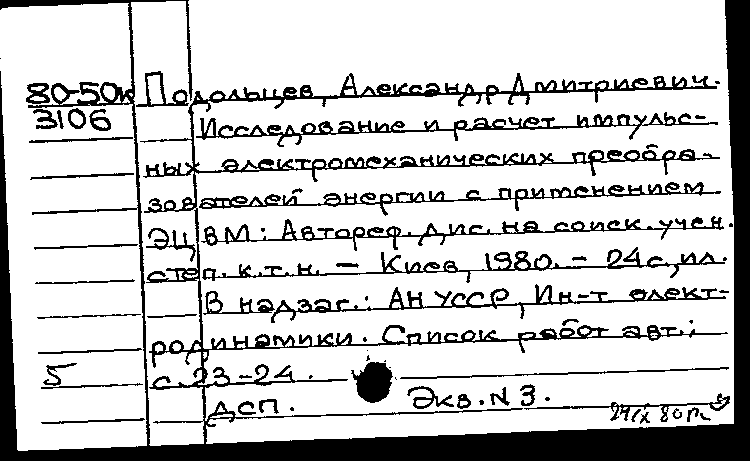 80-50к Подольцев, Александр Дмитриевич.
3106 Исследование и расчет импульс-
ных электромеханических преобра-
зователей энергии с применением
ЭЦВМ: Автореф. дис. на соиск. учен.
степ. к.т.н. – Киев, 1980. – 24с., ил.
В надзаг.: АН УССР, Ин-т элект-
родинамики. Список работ авт.:
5 с. 23-24.
ДСП. Экз. N 3.